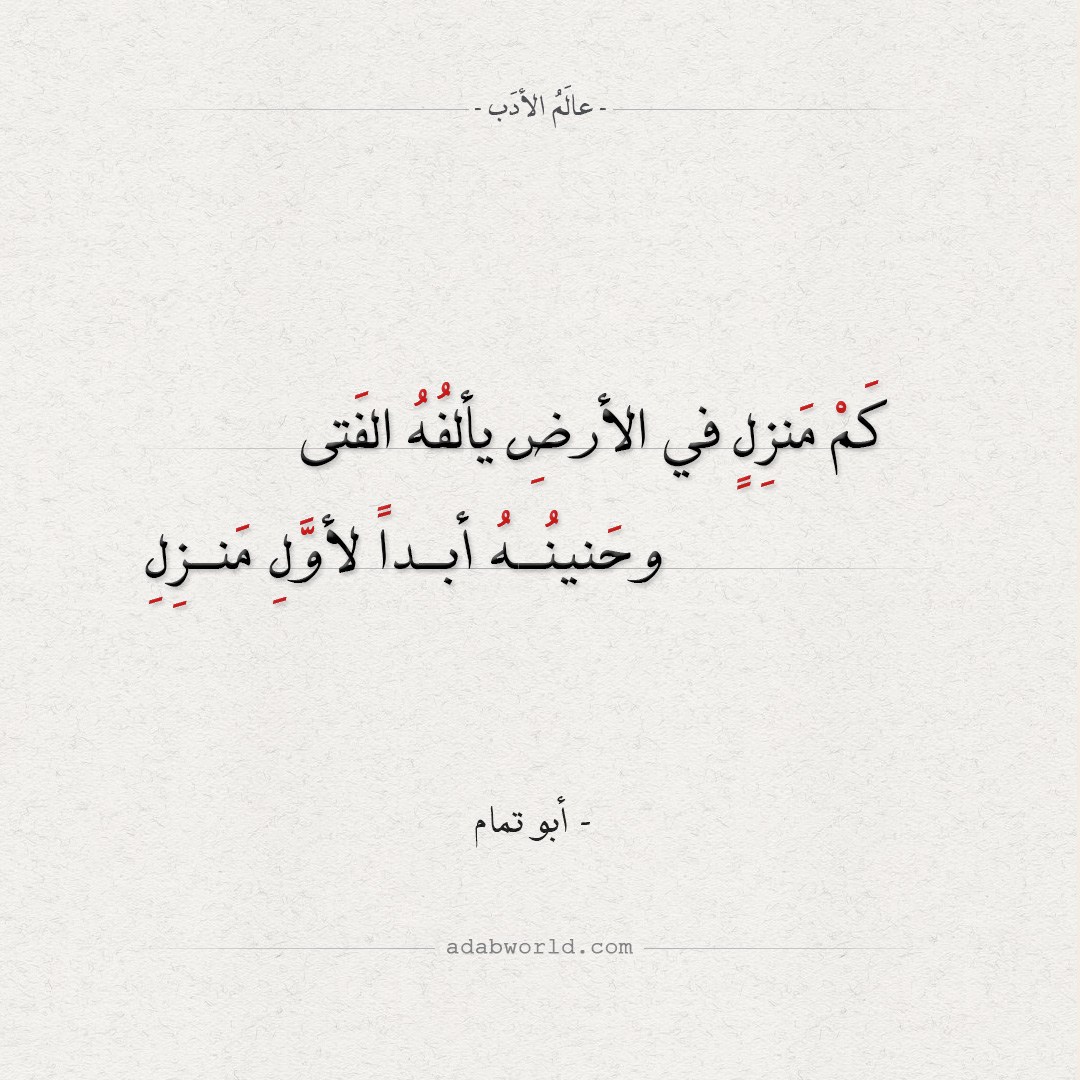 - عالَمُ الأدَب -
كَمْ مَنزِلٍ في الأرضِ يألفُهُ الفَتى
وحَنينُـهُ أبـداً لأوَّلِ مَنـزِلِ
- أبو تمام
adabworld.com